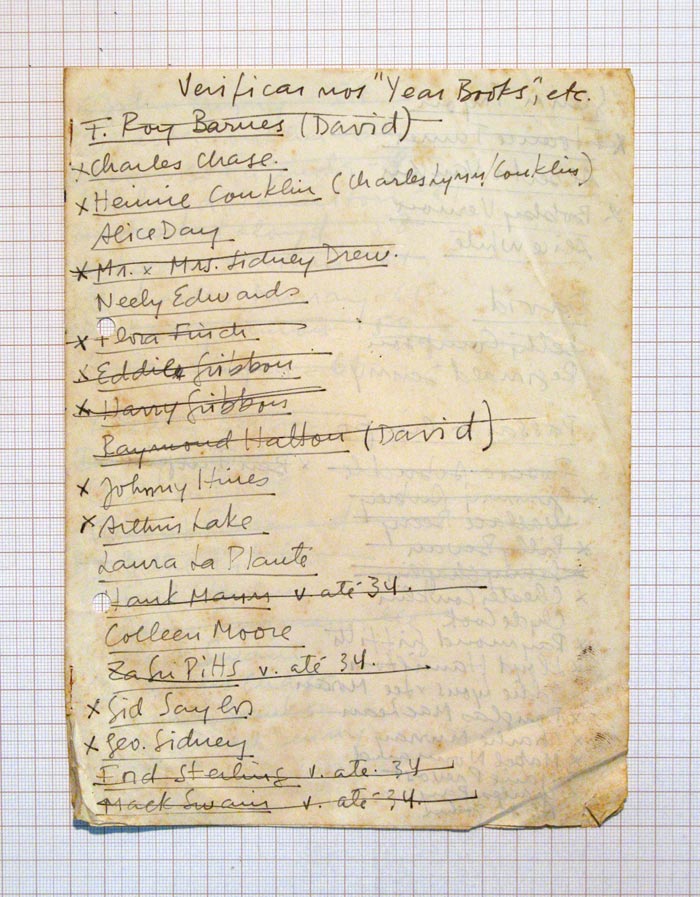 Verificar nos "Year Books", etc.
T. Roy Barnes (David)
x Charles Chase.
x Heinie Conklin (Charles Lynn/Conklin)
Alice Day
x Mr. x Mrs. Sidney Drew.
Neely Edwards
x Flora Finch
x Eddie Gribbon
x Harry Gribbon
Raymond Hatton (David)
x Johnny Hines
x Arthur Lake
Laura La Plante
Hank Mann v. até 34.
Colleen Moore
ZaSu Pitts v. até 34.
x Sid Saylor
x Geo. Sidney
Ford Sterling v. até 34
Mack Swain v. até 34.